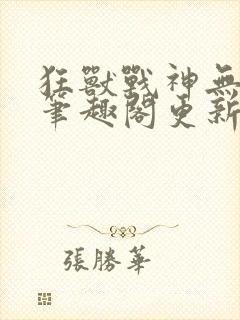 狂獸戰神無
筆趣閣更新
張勝華